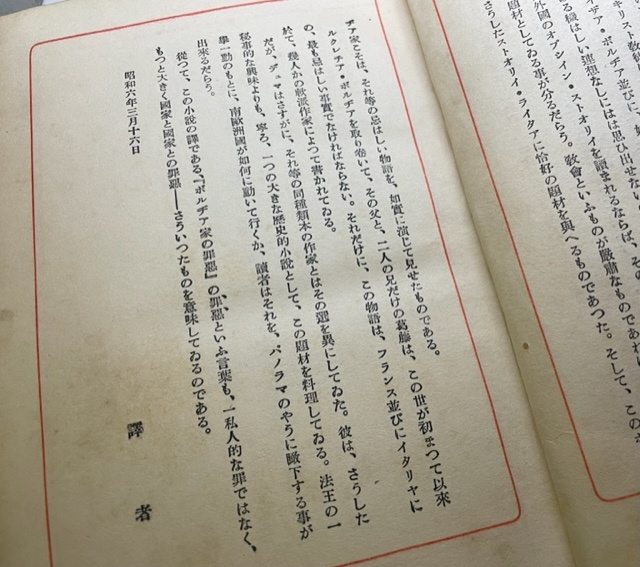 キリスト教
ヂア・ボルヂア並び
る職はしい連想なしには思ひ出せない
外國のオブシイン・ストオリイを讀まれるならば、そ
題材としてゐる事が分るだらう。教會といふものが嚴肅なものであれ
さうしたストオリイ・ライタアに恰好の題材を與へるものであつた。そして、こ
ヂア家こそは、それ等の忌はしい物語を、如實に演じて見せたものである。
ルクレチア・ボルヂアを取り卷いて、その父と、二人の兄だけの葛藤は、この世が初まつて以來
の、最も忌はしい事實でなければならない。それだけに、この物語は、フランス並びにイタリヤに
於て、幾人かの獻派作家によつて書かれてゐる。
だが、デュマはさすがに、それ等の同種類本の作家とはその選を異にしてゐた。彼は、さうした
秘事的な興味よりも、寧ろ、一つの大きな歷史的小說として、この題材を料理してゐる。法王の一
擧一動のもとに、南歐洲國が如何に動いて行くか、讀者はそれを、パノラマのやうに瞰下する事が
出來るだらう。
從つて、この小說の譯である、『ボルヂア家の罪惡』の罪惡といふ言葉も、一私人的な罪ではなく、
もつと大きく國家と國家との罪惡――さういつたものを意味してゐるのである。
昭和六年三月十六日
譯者